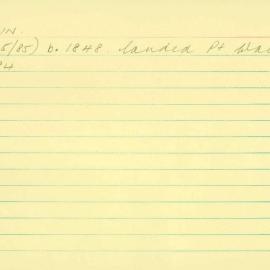 IN.
5/85) b. 1848. landed Pt
84